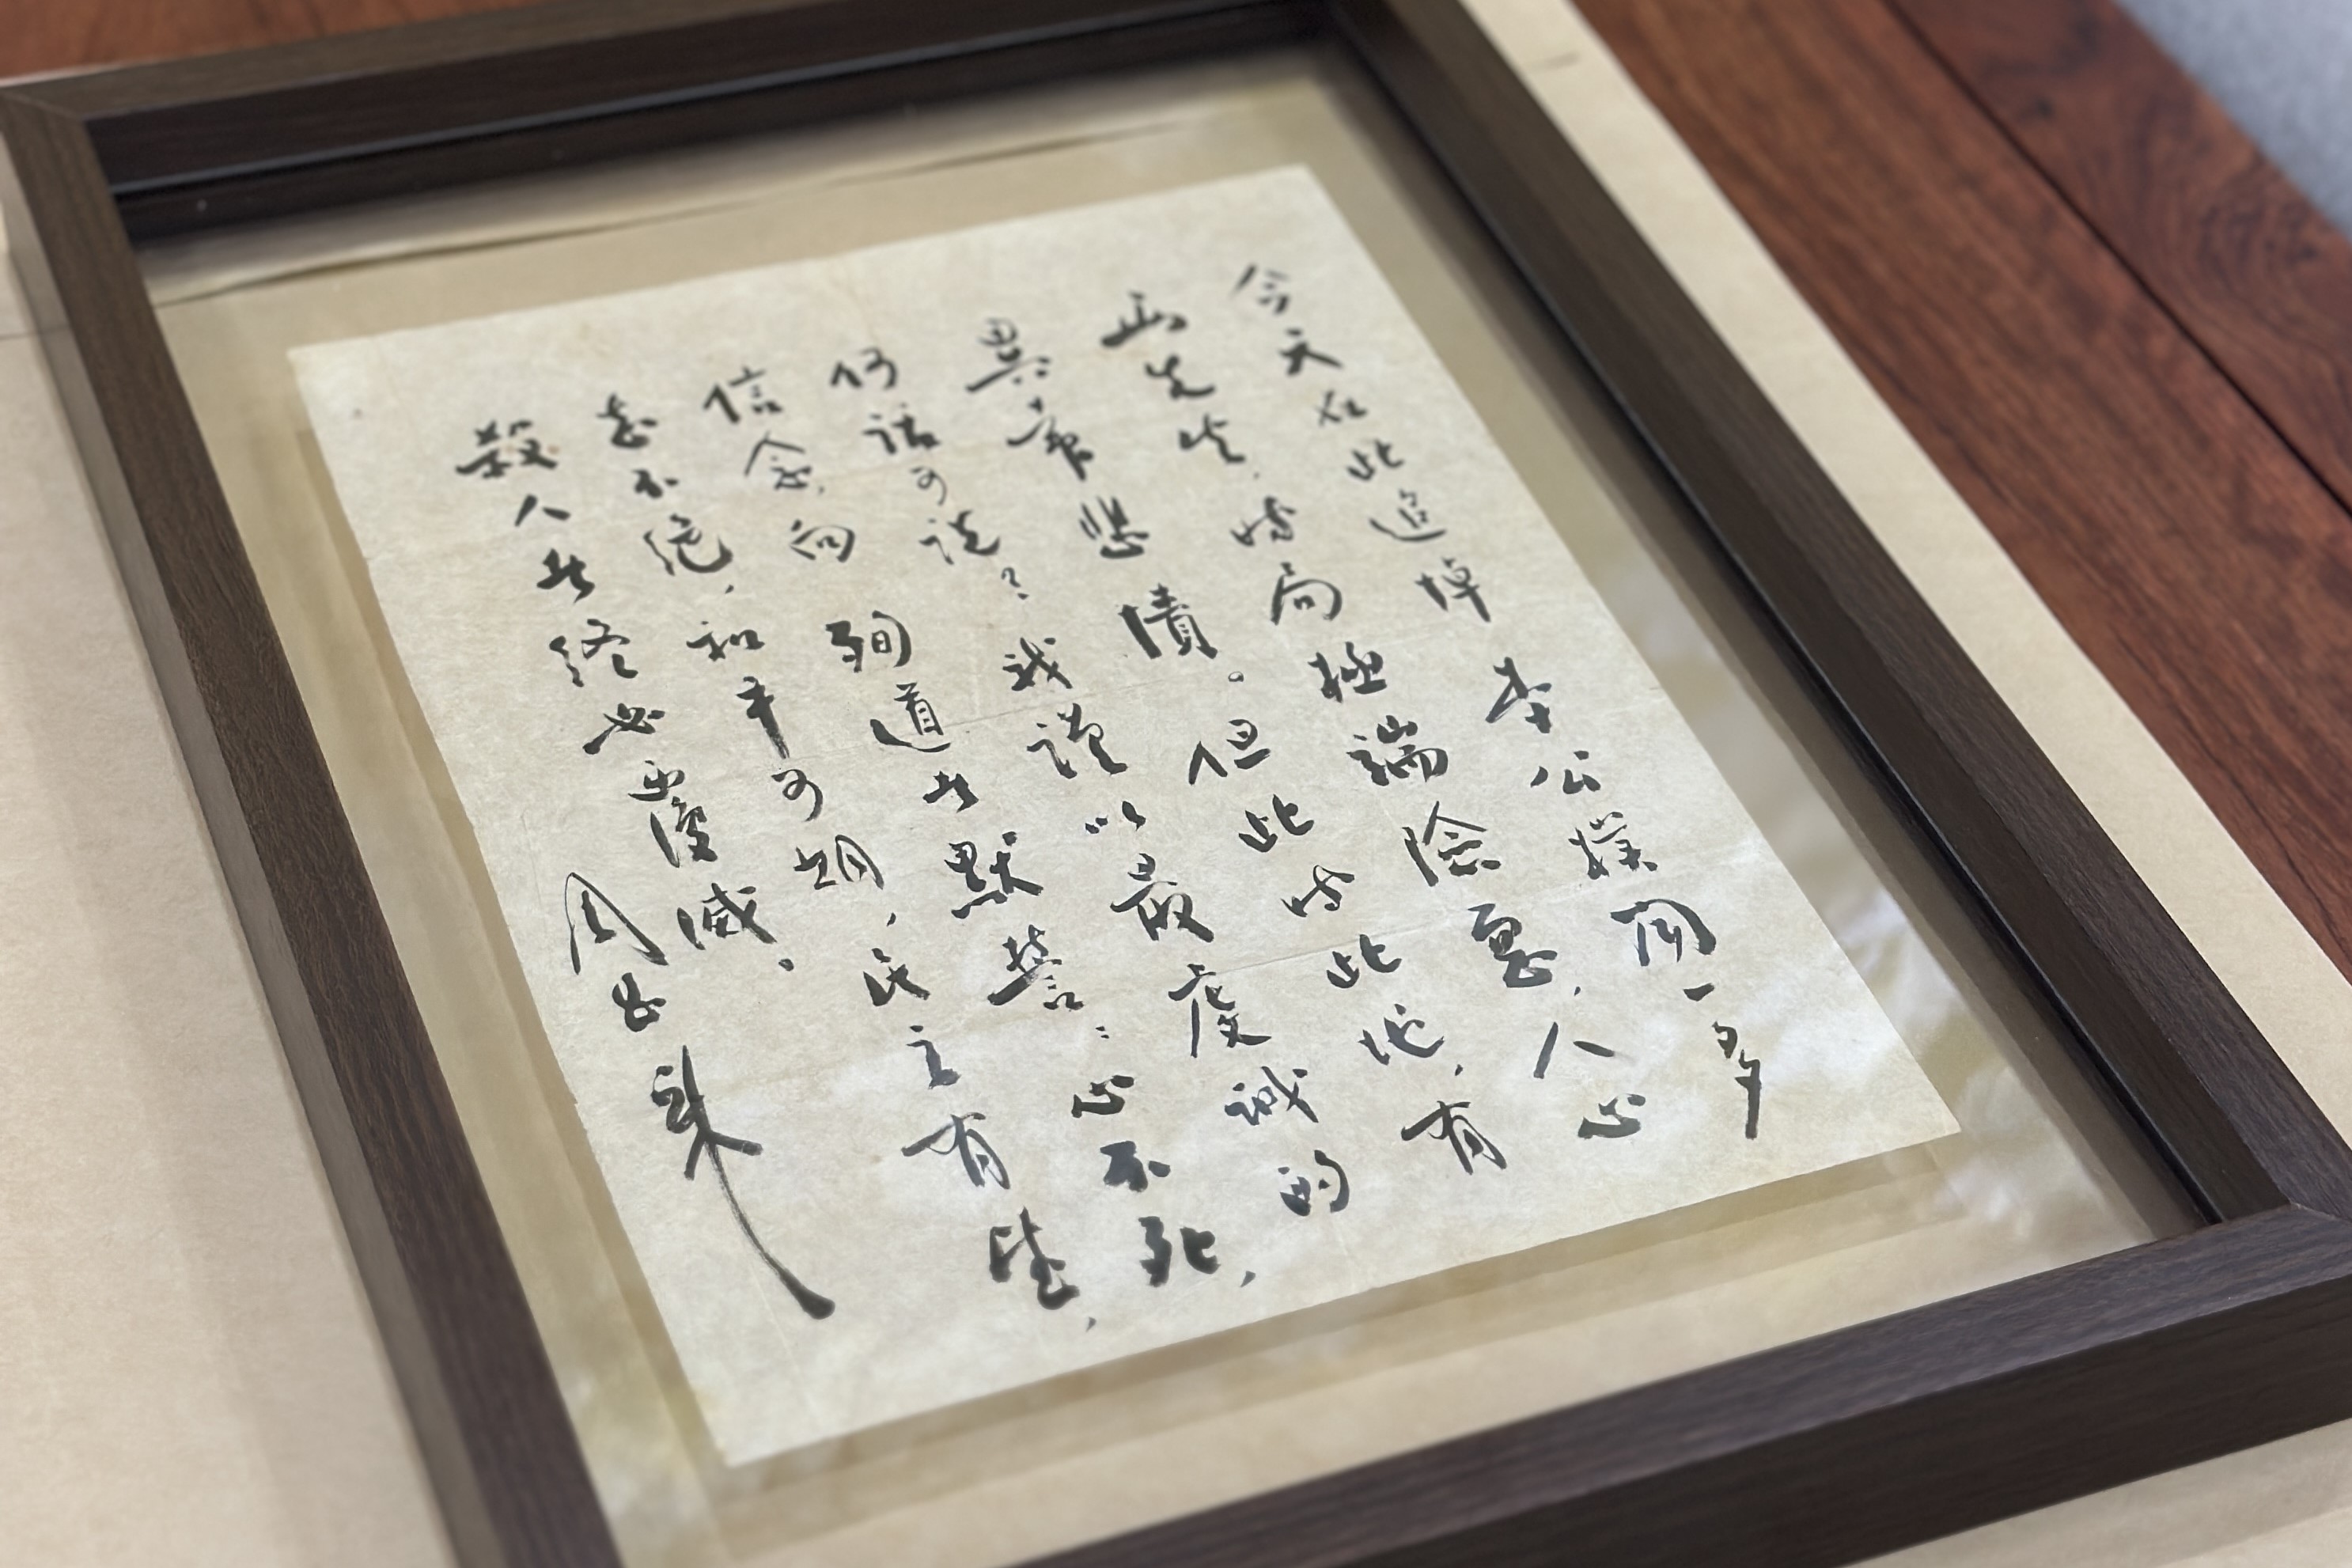 今天在此追悼李公樸聞一多
兩先生,時局極端險惡,人心
異常悲憤。但此時此地,有
何話可說?我謹以最虔誠的
信念,向殉道者默誓:心不死,
志不絕,和平可期,民主有望,
殺人者終必覆滅。
周恩来